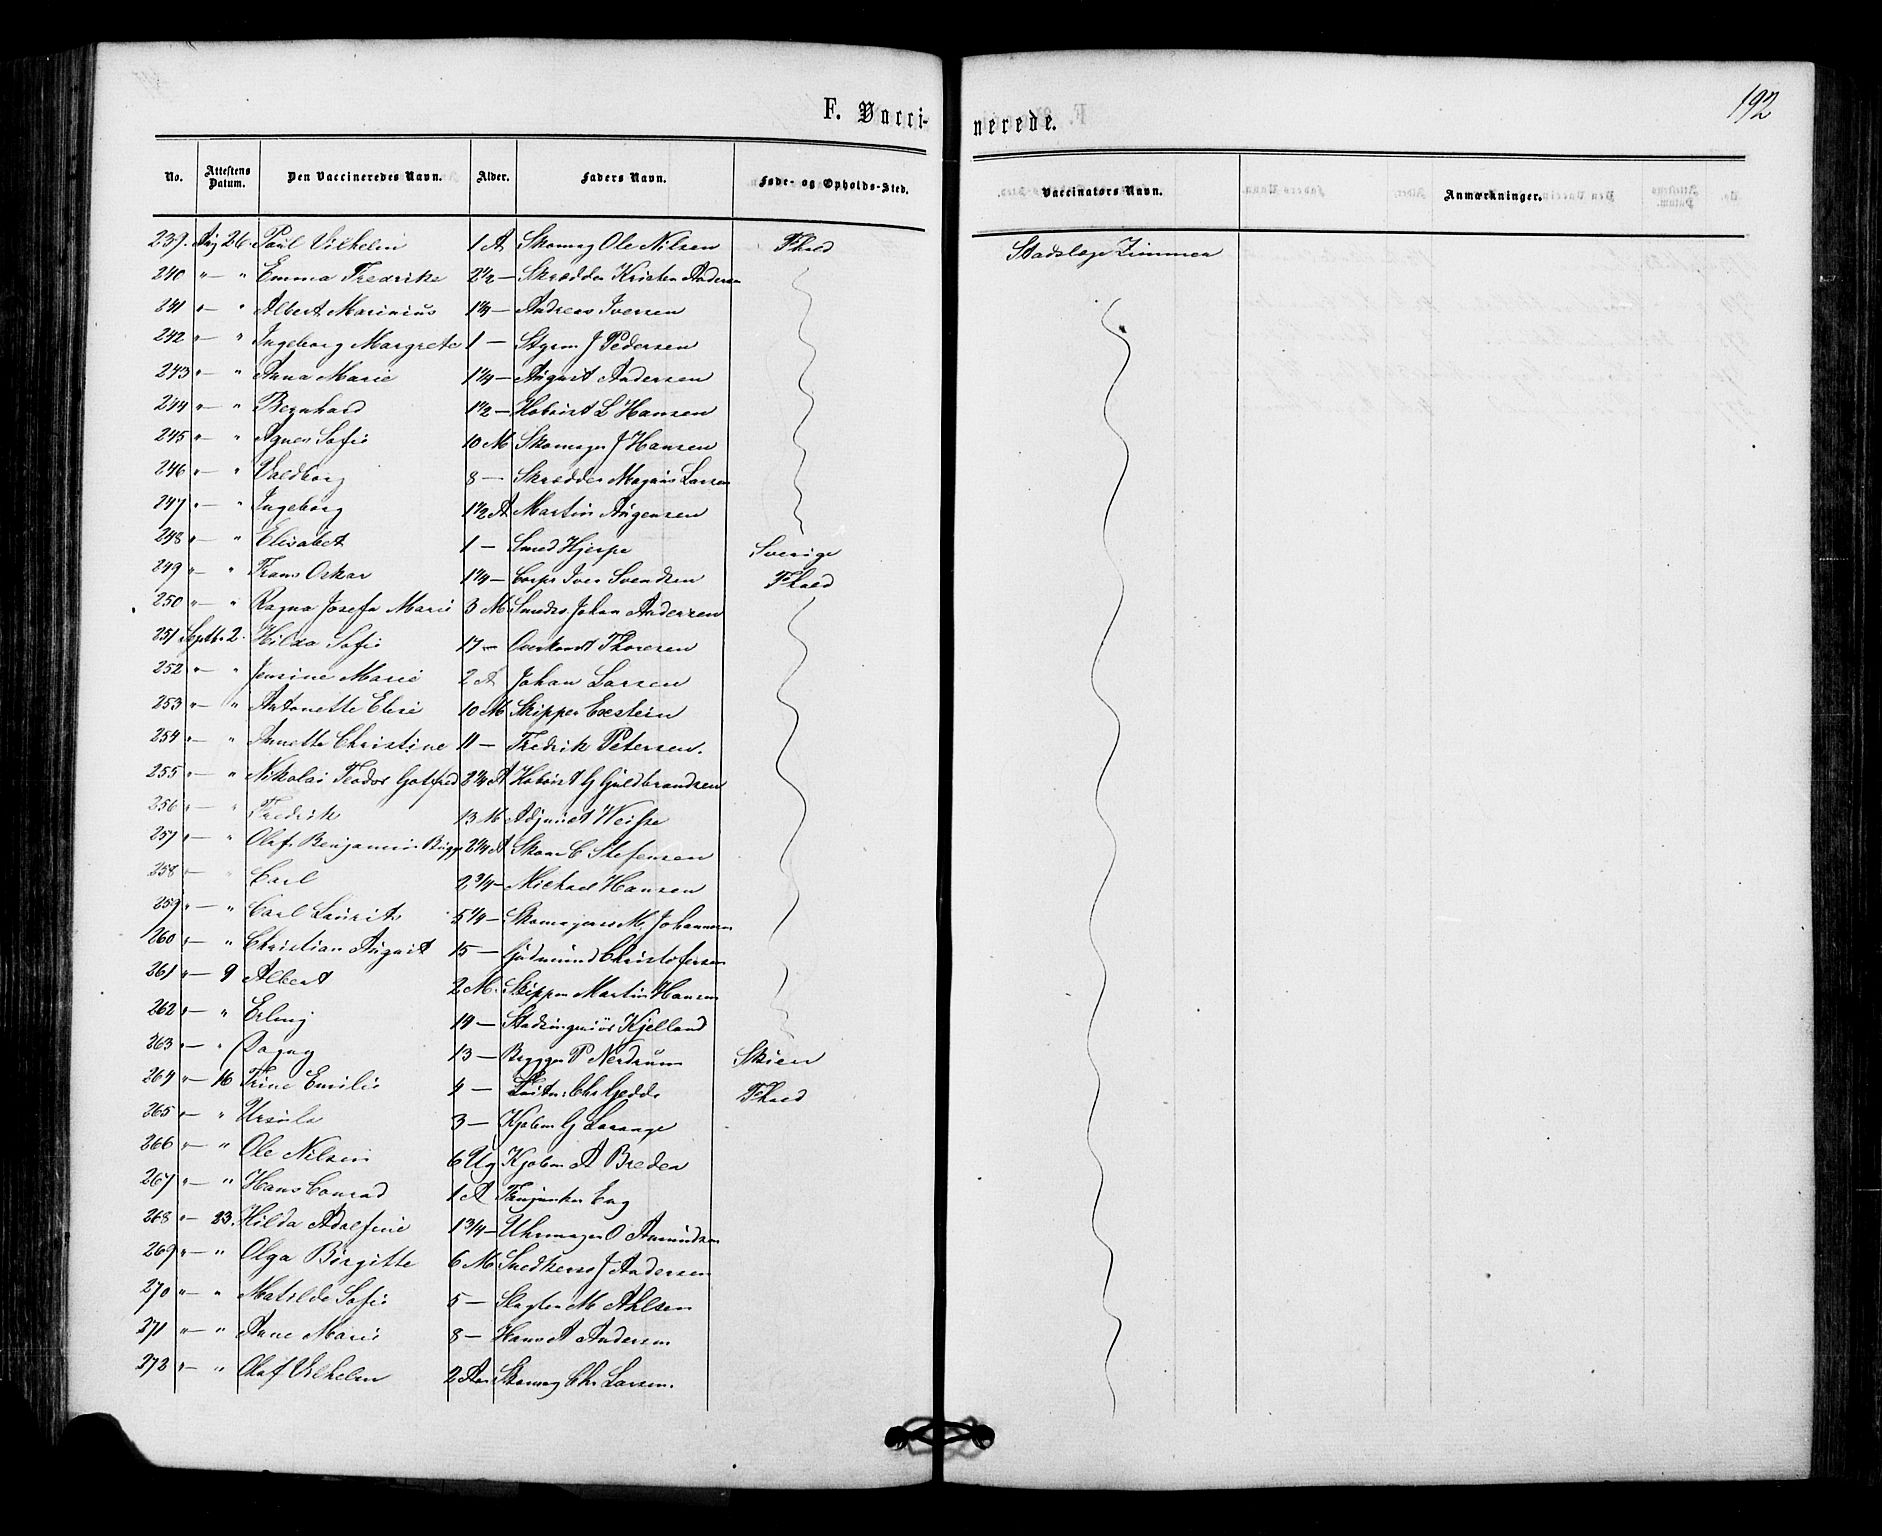 192
F. Vacci- nerede.
No. Attestens Datum. Den Vaccineredes Navn. Alder. Faders Navn. Føde- og Opholds-Sted. Vaccinators Navn. Anmærkninger.
239. Aug 26. Paul Vilhelm 1 A Skomag Ole Nilsen Fhald Stadslæge Zimmer
240 " — " Emma Fredrike 2 1/2 — Skrædder Kristen Andersen
241 " — " Albert Marinius 1 1/4 — Andreas Iversen
242 " — " Ingeborg Margrete 1 — Styrm J Pedersen
243 " — " Anna Marie 1 1/4 — August Andersen
244 " — " Bernhard 1 1/2 — Hoboist L Hansen
245 " — " Agnes Sofie 10 M Skomager J Hansen
246 " — " Valdborg 8 — Skrædder Magnus Larsen
247 " — " Ingeborg 1 1/2 A Martin Jürgensen
248 " — " Elisabet 1 — Smed Hjerpe Sverige
249 " — " Frans Oskar 1 1/4 — Corps Iver Svendsen Fhald
250 " — " Ragna Josefa Marie 3 M Smeds Johan Andersen
251 Septb. 2. Hilda Sofie 17 — Overkondt Thoresen
252 " — " Jensine Marie 2 A Johan Larsen
253 " — " Antonette Elise 10 M Skipper Eestein
254 " — " Anette Christine 11 — Fredrik Petersen.
255 " — " Nikolai Teodor Gotfred 2 1/4 A Hoboist G Guldbrandsen
256 " — " Fredrik 13 M Adjunct Weisse
257 " — " Olaf Benjamin Bugge 2 1/4 A Skom C Stefensen
258 " Carl 2 3/4 — Michael Hansen
259 " — " Carl Laurits 5 1/4 — Skomagers M. Johannesen
260 " — " Christian August 15 — Gudmund Christofersen
261 " — 9 Albert 2 M. Skipper Martin Hansen
262 " — " Erling 19 — Stadsingeniør Kjelland
263 " — " Dagny 13 — Brygger P Nerdrum Skien
264 " — 16 Trine Emilie 4 — Løitn: Chr Gedde Fhald
265 " — " Ursula 3 — Kjøbm G Lasange
266 " — " Ole Nilsen 6 Ug Kjøbm A Breden
267 " — " Hans Conrad 1 A Fanjunker Eng
268 " — 23. Hilda Adolfine 1 3/4 — Uhrmager O Amundsen
269 " — " Olga Birgitte 6 M Snedkers J Andersen
270 " — " Matilde Sofie 5 — Slagter M Ahlsen
271 " — " Anne Marie 8 — Hans A Andersen
272 " — " Olaf Vilhelm 2 Aar Skomag Chr Larsen.